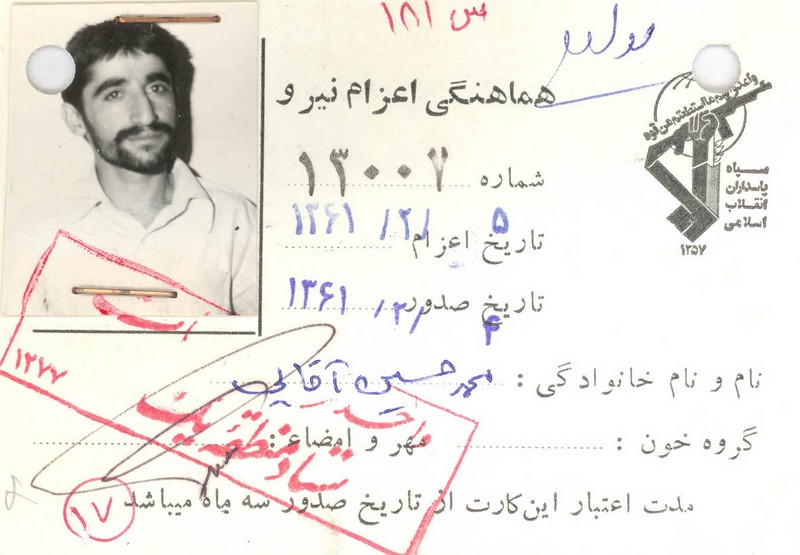 س ۱۸۱
هماهنگی اعزام نیرو
واعدوا لهم ما استطعتم من قوه
سپاه
پاسداران
انقلاب
اسلامی
۱۳۵۷
شماره ۱۳۰۰۷
تاریخ اعزام ۵ /۲/ ۱۳۶۱
تاریخ صدور ۴ /۲/ ۱۳۶۱
نام و نام خانوادگی : محمد حسین آقایی
گروه خون : مهر و امضاء :
مدت اعتبار این کارت از تاریخ صدور سه ماه میباشد
ستاد منطقه یک
۱۲۷۷
۱۷